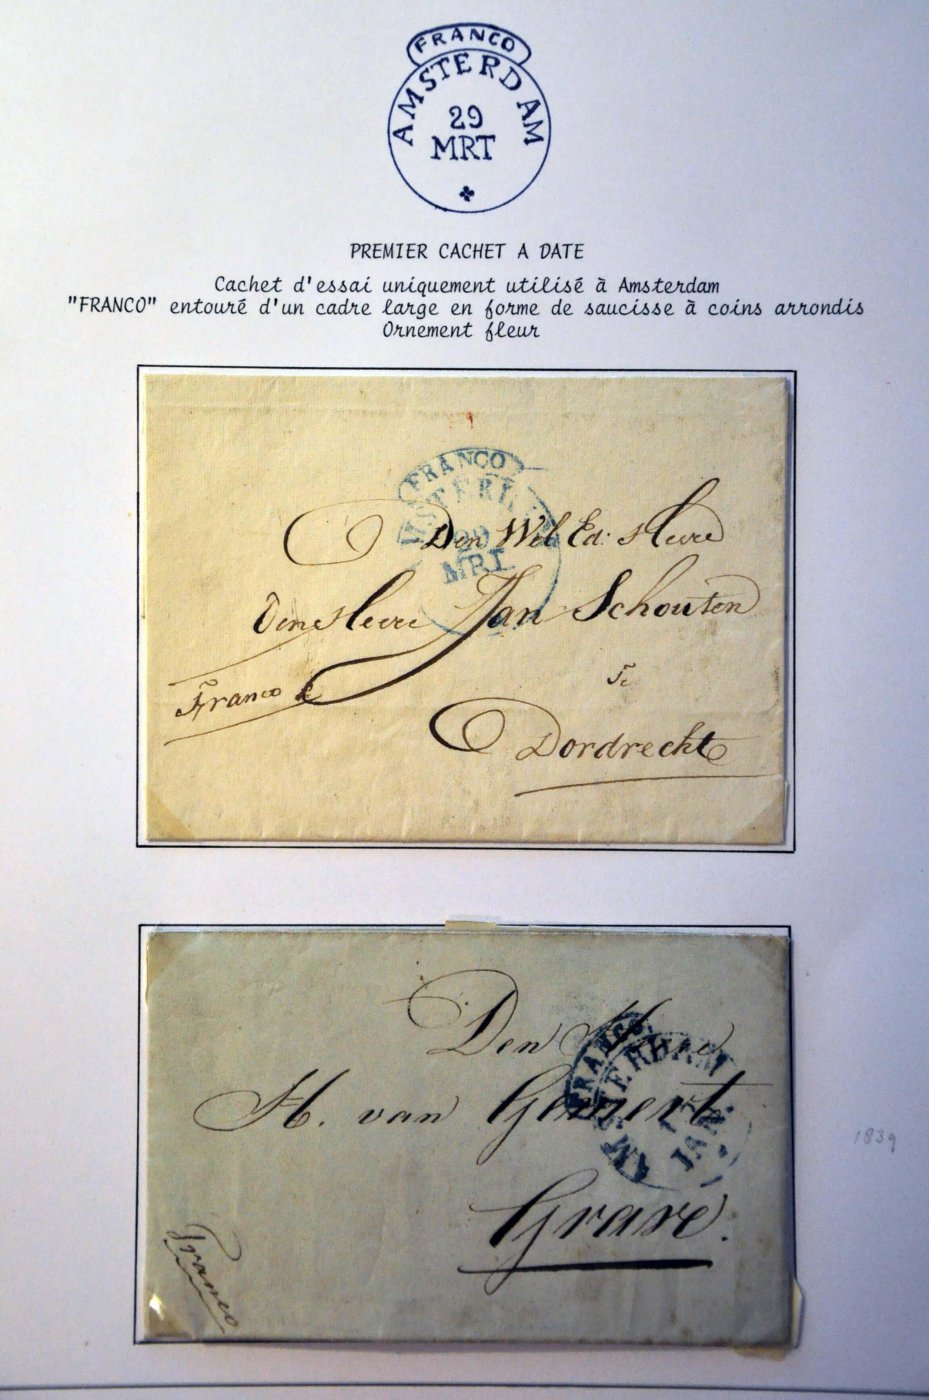 FRANCO
AMSTERDAM
29
MRT
PREMIER CACHET A DATE
Cachet d'essai uniquement utilisé à Amsterdam
"FRANCO" entouré d'un cadre large en forme de saucisse à coins arrondis
Ornement fleur
FRANCO
29
Den Wel Ed: Heere
Den Heere Jan Schouten
Franco
Te
Dordrecht
Den Heer
FRANCO
AMSTERDAM
JAN.
H. van Gemert
1839
Grave.
Franco